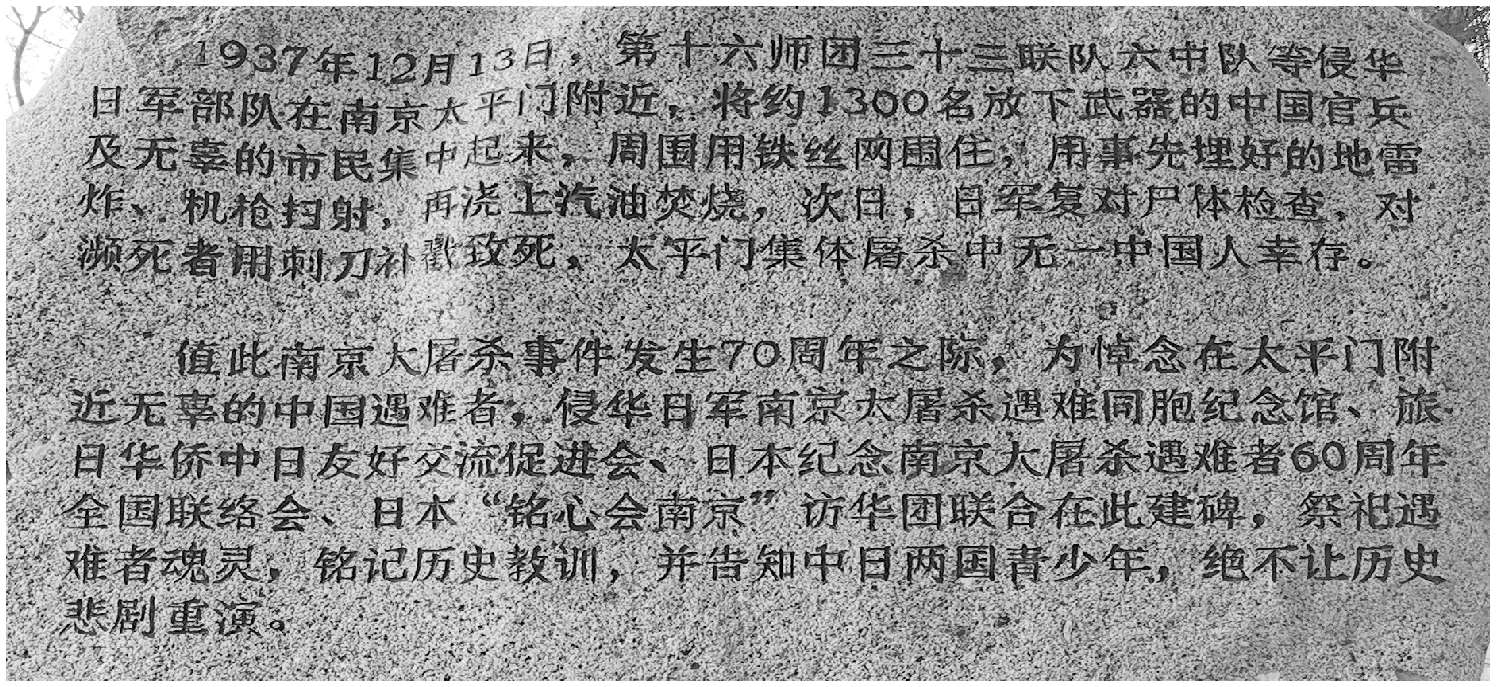 1937年12月13日，第十六师团三十三联队六中队等侵华
日军部队在南京太平门附近，将约1300名放下武器的中国官兵
及无辜的市民集中起来，周围用铁丝网围住，用事先埋好的地雷
炸、机枪扫射，再浇上汽油焚烧，次日，日军复对尸体检查，对
濒死者用刺刀补戳致死，太平门集体屠杀中无一中国人幸存。
值此南京大屠杀事件发生70周年之际，为悼念在太平门附
近无辜的中国遇难者，侵华日军南京大屠杀遇难同胞纪念馆、旅
日华侨中日友好交流促进会、日本纪念南京大屠杀遇难者60周年
全国联络会、日本“铭心会南京”访华团联合在此建碑，祭祀遇
难者魂灵，铭记历史教训，并告知中日两国青少年，绝不让历史
悲剧重演。